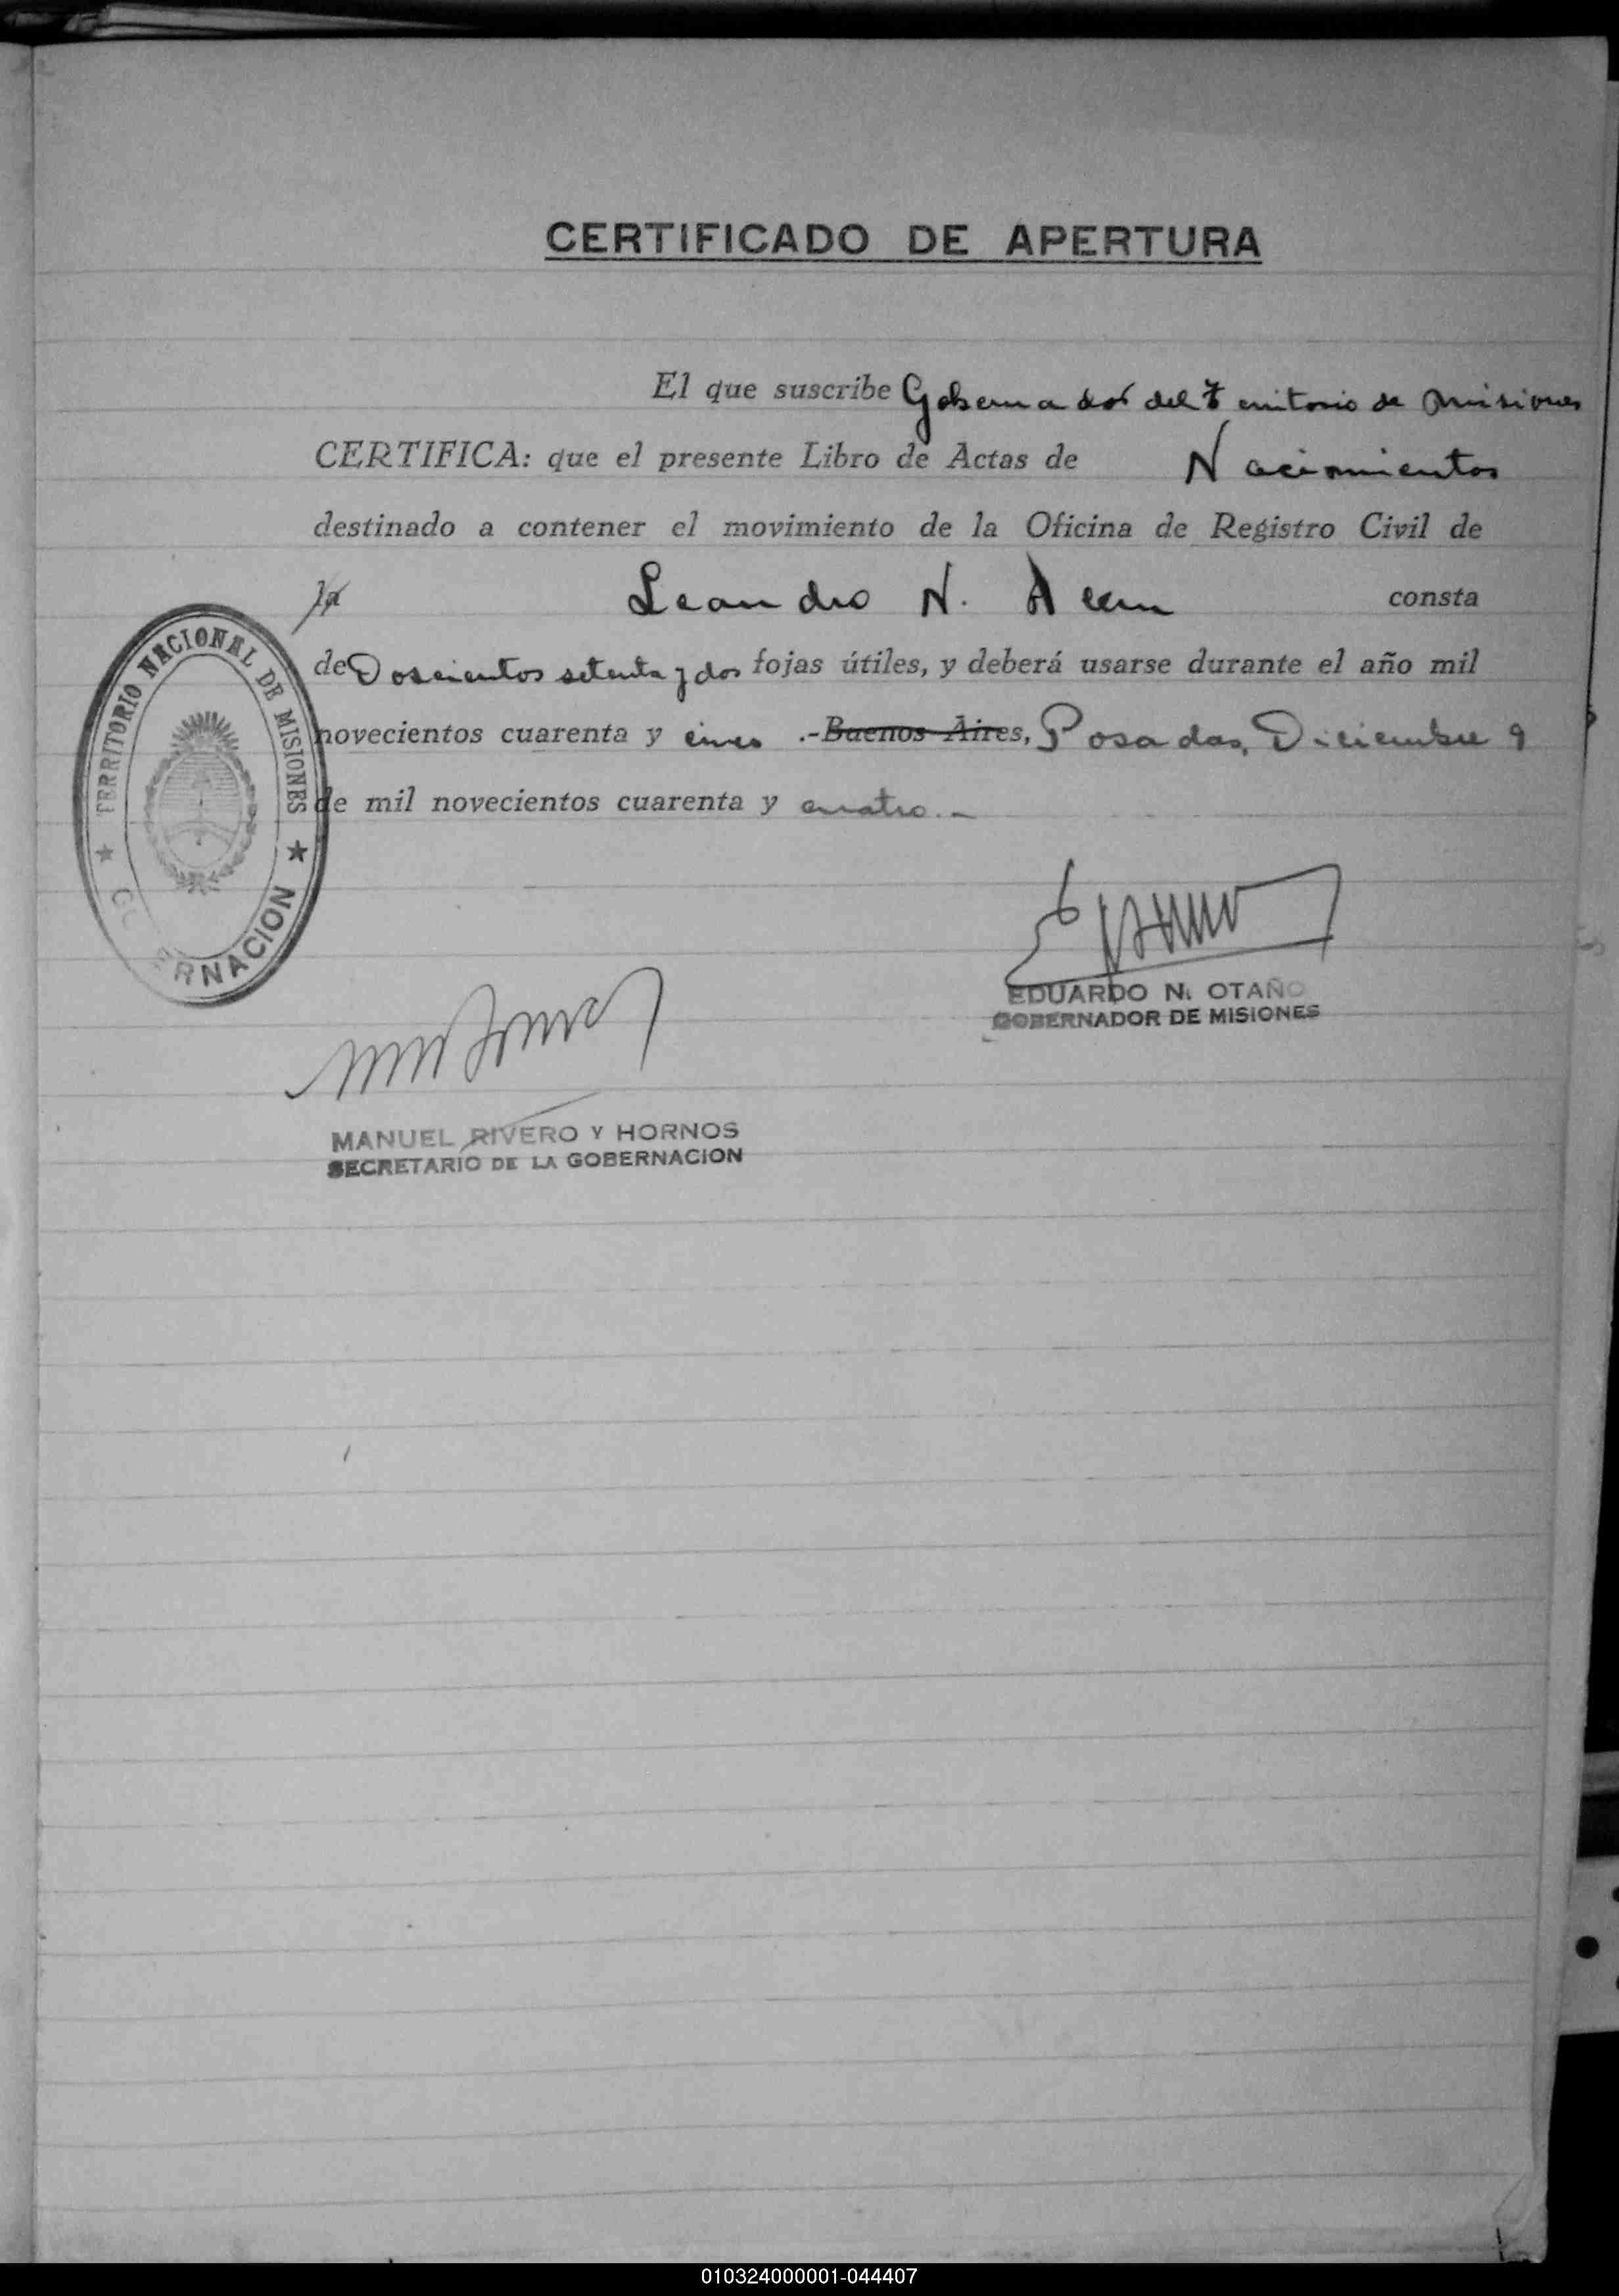 CERTIFICADO DE APERTURA
El que suscribe Gobernador del Territorio de Misiones
CERTIFICA: que el presente Libro de Actas de Nacimientos
destinado a contener el movimiento de la Oficina de Registro Civil de
la Leandro N. Alem consta
de Doscientos setenta y dos fojas útiles, y deberá usarse durante el año mil
novecientos cuarenta y cinco .-Buenos Aires, Posadas, Diciembre 9
de mil novecientos cuarenta y cuatro.-
TERRITORIO NACIONAL DE MISIONES
EDUARDO N. OTAÑO
GOBERNADOR DE MISIONES
MANUEL RIVERO Y HORNOS
SECRETARIO DE LA GOBERNACION
010324000001-044407